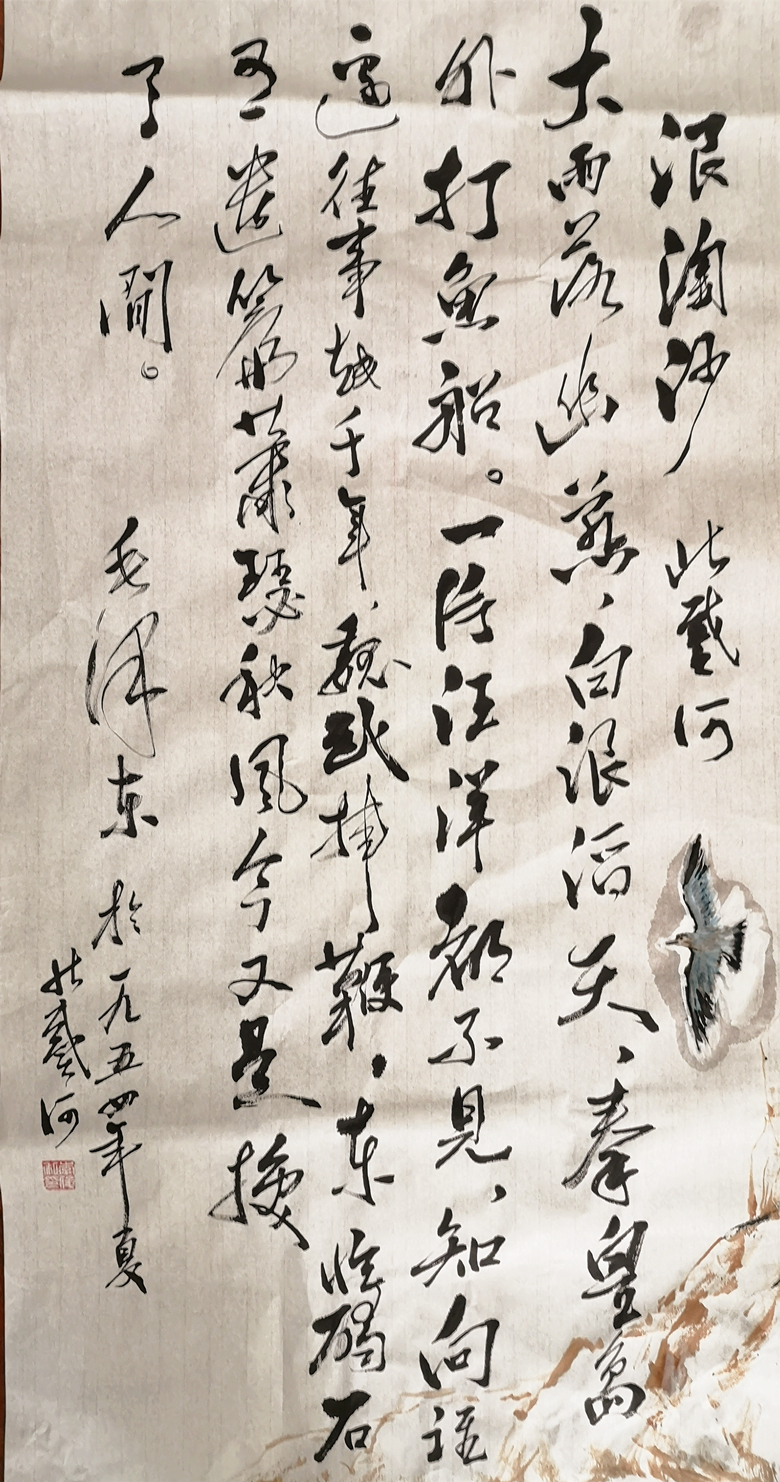 浪淘沙 北戴河
大雨落幽燕、白浪滔天、秦皇島
外打魚船。一片汪洋都不見、知向誰
邊往事越千年、魏武揮鞭、东临碣石
有遺篇蕭瑟秋風今又是換
了人間。 毛泽东於一九五四年夏
北戴河